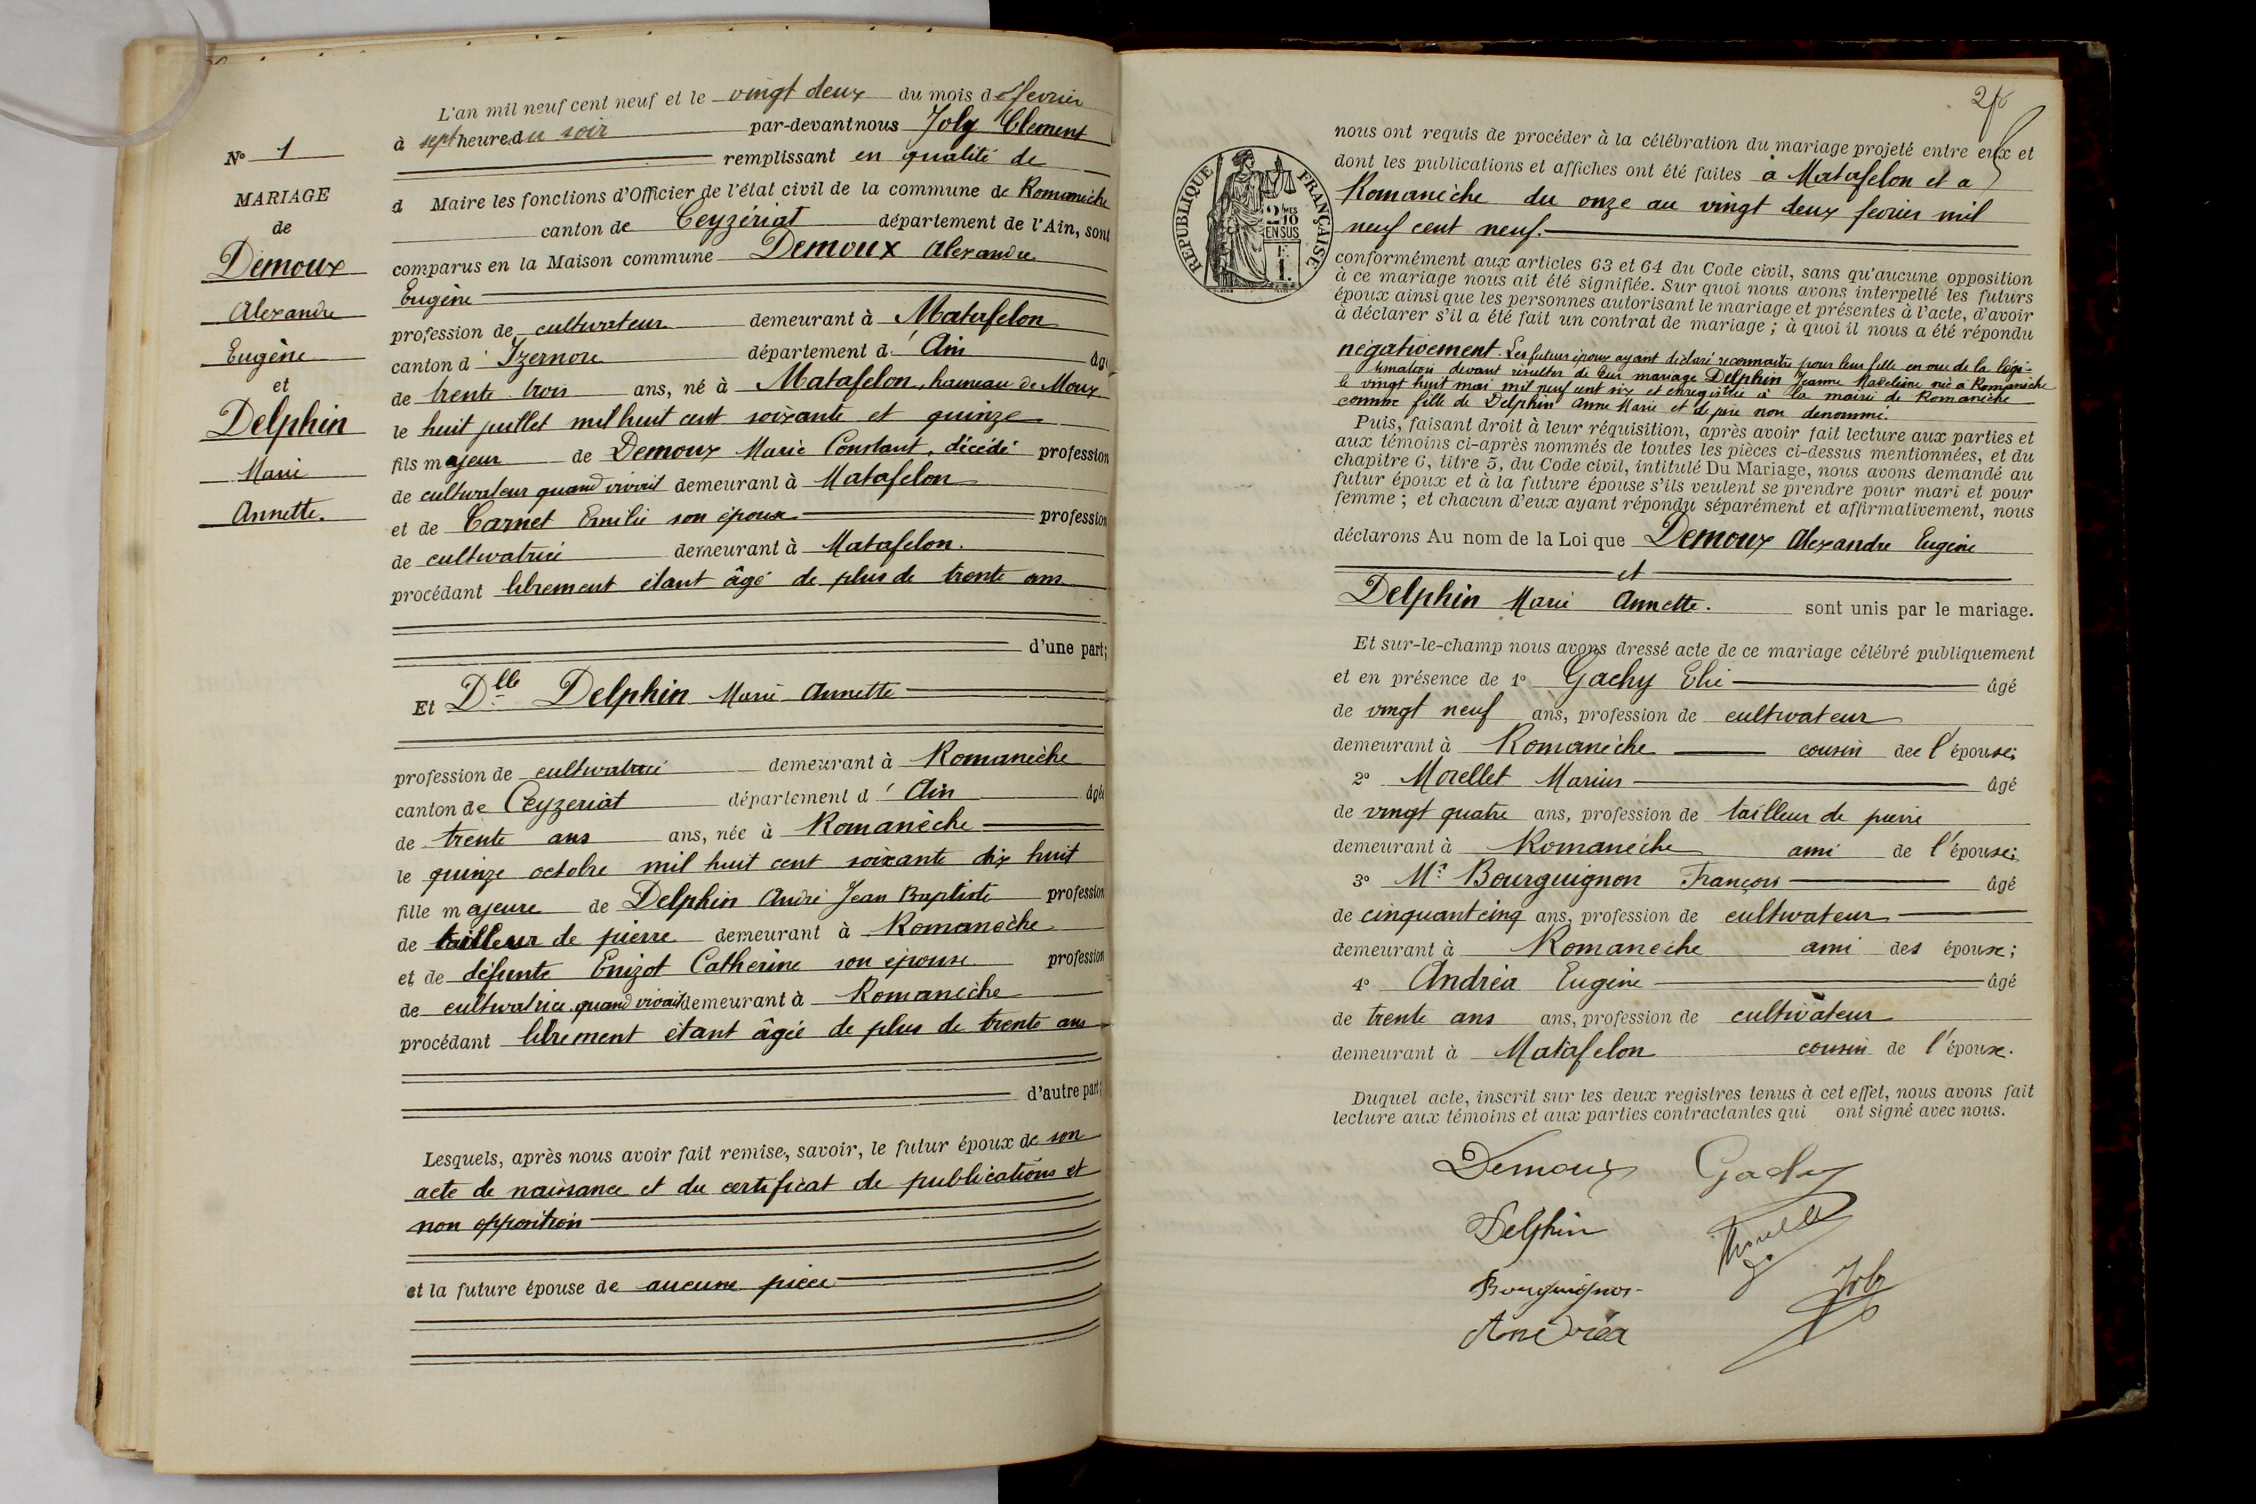 N° 1
MARIAGE
de
Demoux
Alexandre
Eugène
et
Delphin
Marie
Annette.
L'an mil neuf cent neuf et le vingt deux du mois de fevrier
à sept heure du soir par-devant nous Joly Clement
remplissant en qualité de
d Maire les fonctions d'Officier de l'état civil de la commune de Romanèche
canton de Ceyzériat département de l'Ain, sont
comparus en la Maison commune Demoux Alexandre
Eugène
profession de cultivateur demeurant à Matafelon
canton d' Izernore département d' Ain âgé
de trente trois ans, né à Matafelon, hameau de Moux
le huit juillet mil huit cent soixante et quinze
fils majeur de Demoux Marie Constant, décédé profession
de cultivateur quand vivait demeurant à Matafelon
et de Carnet Emilie son épouse profession
de cultivatrice demeurant à Matafelon.
procédant librement étant âgé de plus de trente ans
d'une part;
Et Dlle Delphin Marie Annette
profession de cultivatrice demeurant à Romanèche
canton de Ceyzeriat département d' Ain âgée
de trente ans ans, née à Romanèche
le quinze octobre mil huit cent soixante dix huit
fille majeure de Delphin André Jean Baptiste profession
de tailleur de pierre demeurant à Romanèche
et de défunte Enizot Catherine son épouse profession
de cultivatrice quand vivait demeurant à Romanèche
procédant librement étant âgée de plus de trente ans
d'autre part;
Lesquels, après nous avoir fait remise, savoir, le futur époux de son
acte de naissance et du certificat de publications et
non opposition
et la future épouse de aucune pièce
REPUBLIQUE FRANÇAISE
2/10 MES
EN SUS
1 F.
nous ont requis de procéder à la célébration du mariage projeté entre eux et
dont les publications et affiches ont été faites à Matafelon et a
Romanèche du onze au vingt deux fevrier mil
neuf cent neuf.
conformément aux articles 63 et 64 du Code civil, sans qu'aucune opposition
à ce mariage nous ait été signifiée. Sur quoi nous avons interpellé les futurs
époux ainsi que les personnes autorisant le mariage et présentes à l'acte, d'avoir
à déclarer s'il a été fait un contrat de mariage ; à quoi il nous a été répondu
négativement. Les futurs époux ayant déclaré reconnaitre pour leur fille en vue de la légi-
timation devant résulter de leur mariage Delphin Jeanne Madeleine née à Romanèche
le vingt huit mai mil neuf cent six et enregistrée à la mairie de Romanèche
comme fille de Delphin Anne Marie et de père non dénommé.
Puis, faisant droit à leur réquisition, après avoir fait lecture aux parties et
aux témoins ci-après nommés de toutes les pièces ci-dessus mentionnées, et du
chapitre 6, titre 5, du Code civil, intitulé Du Mariage, nous avons demandé au
futur époux et à la future épouse s'ils veulent se prendre pour mari et pour
femme ; et chacun d'eux ayant répondu séparément et affirmativement, nous
déclarons Au nom de la Loi que Demoux Alexandre Eugène
et
Delphin Marie Annette. sont unis par le mariage.
Et sur-le-champ nous avons dressé acte de ce mariage célébré publiquement
et en présence de 1° Gachy Elie âgé
de vingt neuf ans, profession de cultivateur
demeurant à Romanèche cousin de l'épouse;
2° Morellet Marius âgé
de vingt quatre ans, profession de tailleur de pierre
demeurant à Romanèche ami de l'épouse;
3° Mr Bourguignon François âgé
de cinquant cinq ans, profession de cultivateur
demeurant à Romanèche ami des épouse;
4° Andréa Eugène âgé
de trente ans ans, profession de cultivateur
demeurant à Matafelon cousin de l'épouse.
Duquel acte, inscrit sur les deux registres tenus à cet effet, nous avons fait
lecture aux témoins et aux parties contractantes qui ont signé avec nous.
Demoux Gachy
Delphin Morellet
Bourguignon Joly
Andréa